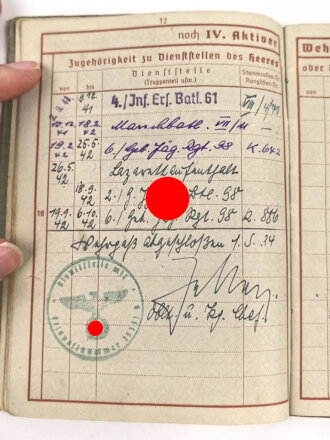 12
noch IV. Aktiver
Weh
Zugehörigkeit zu Dienststellen des Heeres
oder
von
bis
Dienststelle
(Truppenteil usw.)
Stammrollen-Nr.
Ranglisten-Nr.
8.12. 41 4./Inf. Ers. Batl. 61
10.12. 41 18.2. 42 Marschbatl. VII/11 –
19.2. 42 25.5. 42 6./Geb. Jäg. Rgt. 98 K. 642
26.5. 42 Lazarettaufenthalt
18.9. 42 2./G. Btl. 98
19 19.9. 42 6.10. 42 6./Geb. Rgt. 98 K. 886
Wehrpaß abgeschloßen s. S. 34
Dienststelle mit
Feldpostnummer
Oblt. u. Kp. Chef.